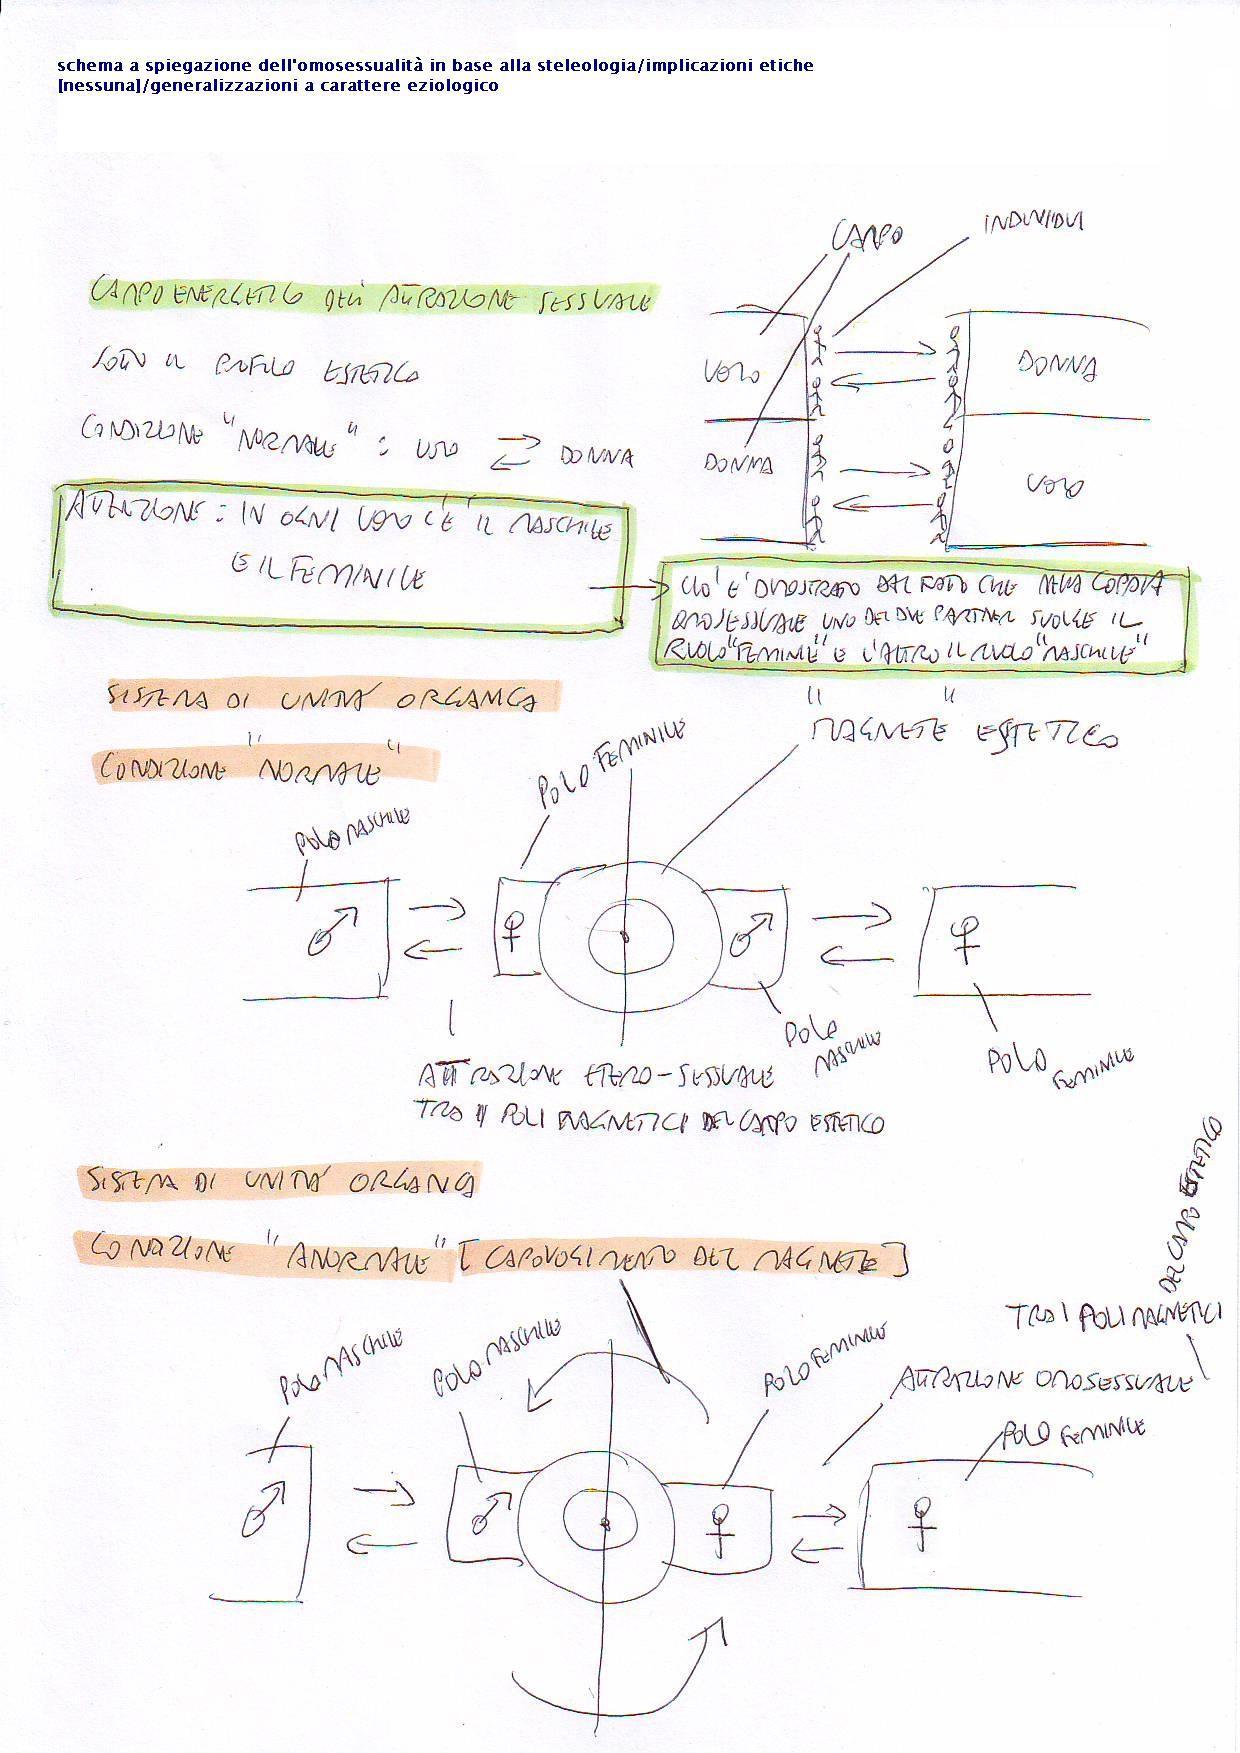 schema a spiegazione dell'omosessualità in base alla steleologia/implicazioni etiche
[nessuna]/generalizzazioni a carattere eziologico
CAMPO
INDIVIDUI
CAMPO ENERGETICO DELL'ATTRAZIONE SESSUALE
SOTTO IL PROFILO ESTETICO
UOMO
DONNA
CONDIZIONE "NORMALE" : UOMO DONNA
DONNA
UOMO
ATTENZIONE : IN OGNI UOMO C'E' IL MASCHILE
E IL FEMMINILE
CIO' E' DIMOSTRATO DAL FATTO CHE NELLA COPPIA
OMOSESSUALE UNO DEI DUE PARTNER SVOLGE IL
RUOLO "FEMMINILE" E L'ALTRO IL RUOLO "MASCHILE"
SISTEMA DI UNITA' ORGANICA
CONDIZIONE "NORMALE"
"MAGNETE" ESTETICO
POLO FEMMINILE
POLO MASCHILE
♂
♀
♂
♀
POLO MASCHILE
POLO FEMMINILE
ATTRAZIONE ETERO-SESSUALE
TRA I POLI MAGNETICI DEL CAMPO ESTETICO
SISTEMA DI UNITA' ORGANICA
CONDIZIONE "ANORMALE" [CAPOVOLGIMENTO DEL MAGNETE]
DEL CAMPO ESTETICO
TRA I POLI MAGNETICI
ATTRAZIONE OMOSESSUALE
POLO MASCHILE
POLO MASCHILE
POLO FEMMINILE
POLO FEMMINILE
♂
♂
♀
♀